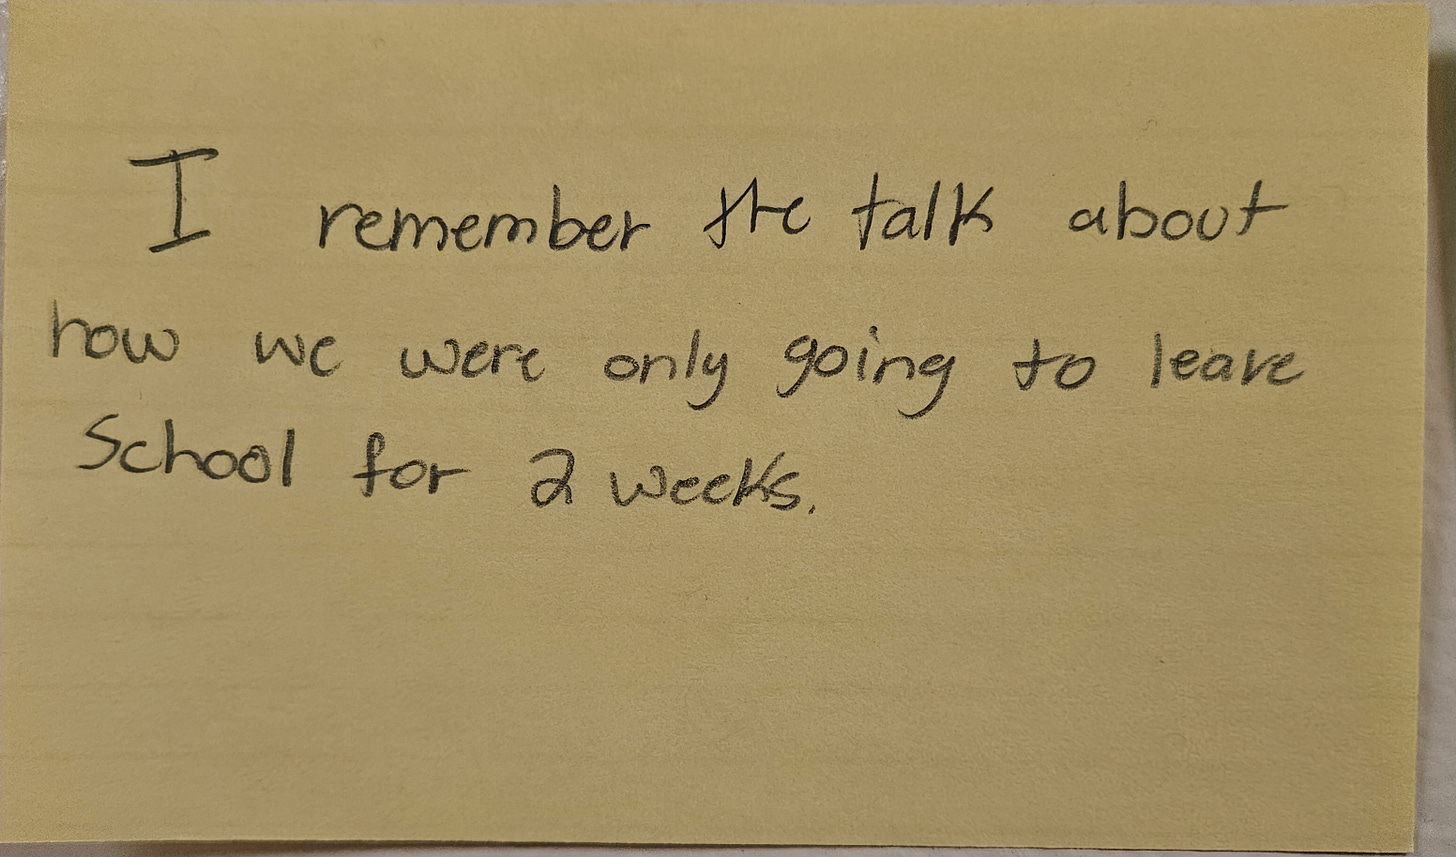 I remember the talk about
how we were only going to leave
School for 2 weeks.